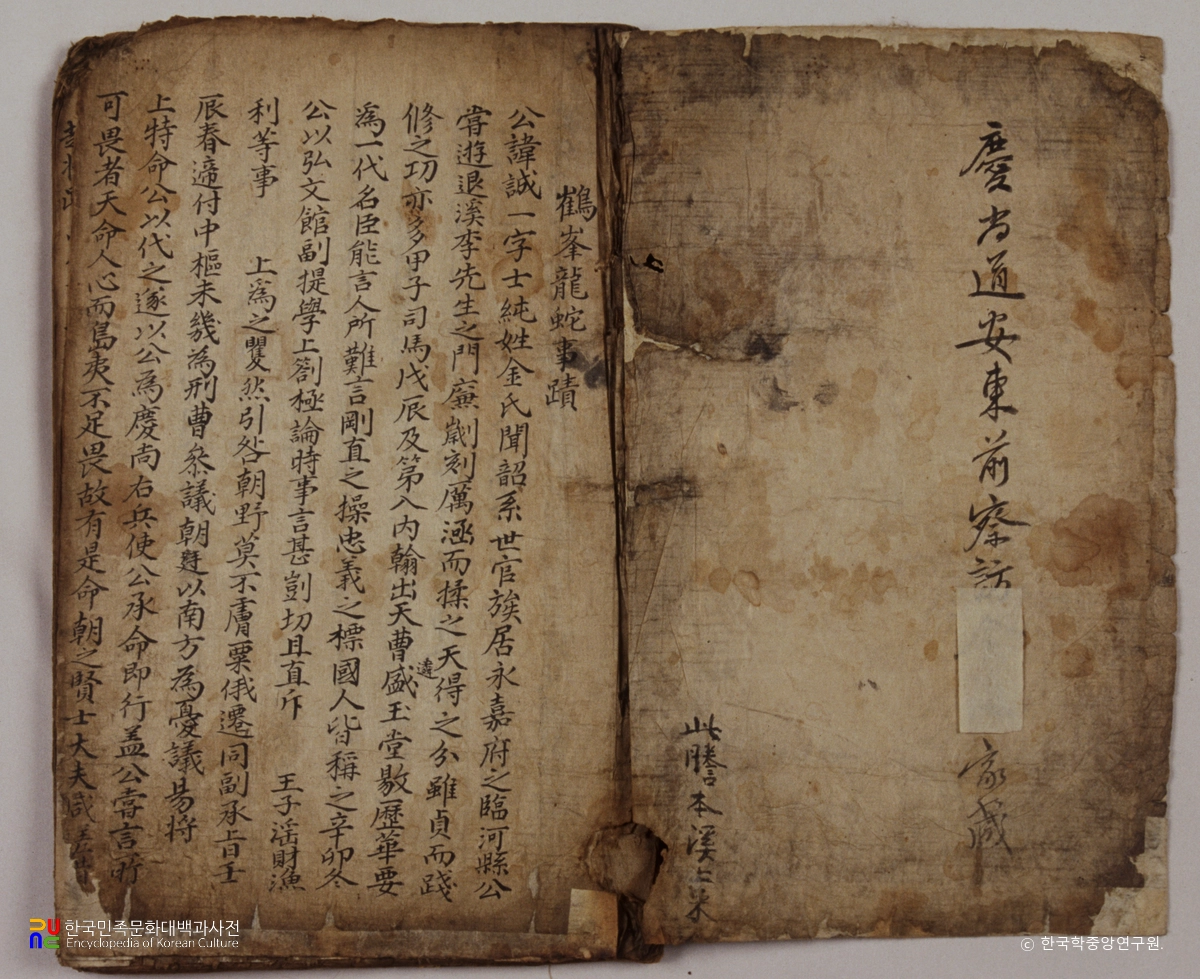 慶尚道安東前察訪
家藏
此謄本溪上來
鶴峯龍蛇事蹟
公諱誠一字士純姓金氏聞韶系世官族居永嘉府之臨河縣公
嘗遊退溪李先生之門廉劌刻厲涵而揉之天得之分雖貞而踐
修之功亦多甲子司馬戊辰及第入内翰出天曹盛遠玉堂敭歷華要
爲一代名臣能言人所難言剛直之操忠義之標國人皆稱之辛卯冬
公以弘文館副提學上劄極論時事言甚剴切且直斥 王子滛財漁
利等事 上爲之瞿然引咎朝野莫不膚粟俄遷同副承旨壬
辰春遞付中樞未幾爲刑曹叅議朝廷以南方爲憂議易將
上特命公以代之遂以公爲慶尚右兵使公承命即行盖公嘗言所
可畏者天命人心而島夷不足畏故有是命朝之賢士大夫咸
한국민족문화대백과사전
Encyclopedia of Korean Culture
© 한국학중앙연구원.